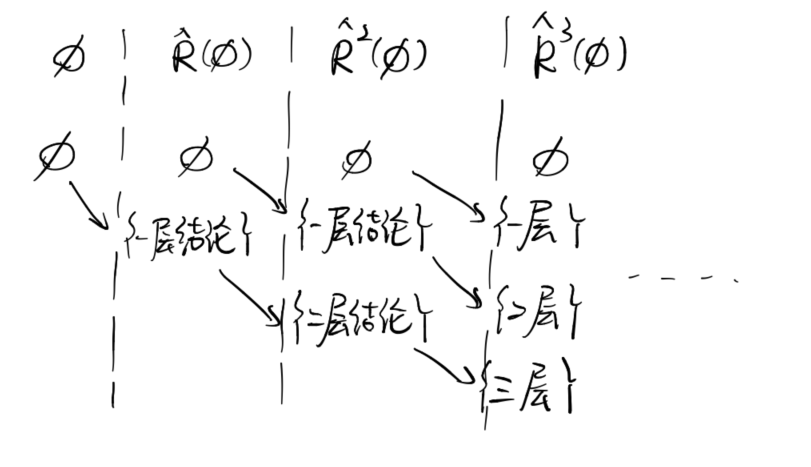 ∅ | R̂(∅) | R̂²(∅) | R̂³(∅)
∅ ∅ ∅ ∅
{一层结论} {一层结论} {一层}
{二层结论} {二层} - - - .
{三层}